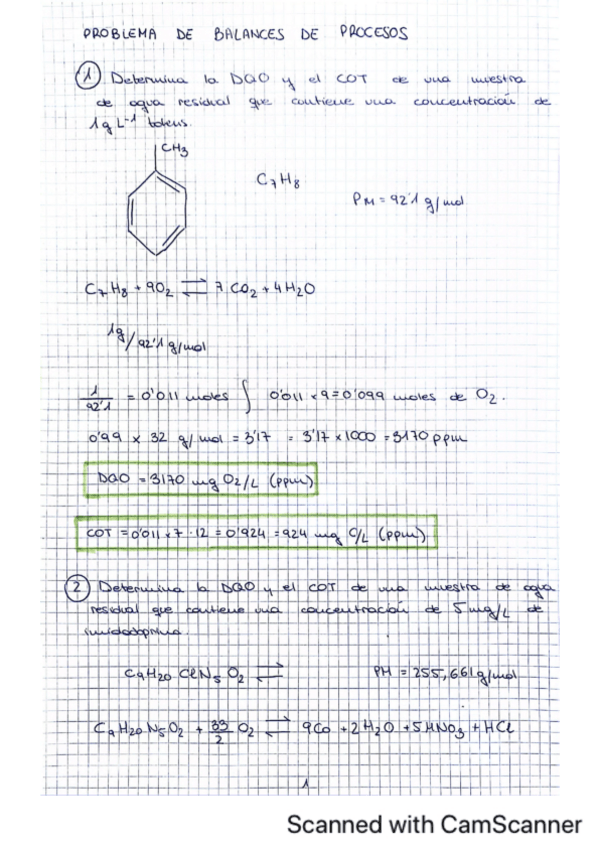 PROBLEMA DE BALANCES DE PROCESOS
1 Determina la DQO y el COT de una muestra
de agua residual que contiene una concentración de
1g L-1 tolueno.
CH3
C7H8
PM = 92'1 g/mol
C7H8 + 9O2 ⇌ 7 CO2 + 4H2O
1g/92'1 g/mol
1/92'1 = 0'011 moles ∫ 0'011 x 9 = 0'099 moles de O2.
0'99 x 32 g/mol = 3'17 = 3'17 x 1000 = 3170 ppm
DQO = 3170 mg O2/L (ppm)
COT = 0'011 x 7 · 12 = 0'924 = 924 mg C/L (ppm)
2 Determina la DQO y el COT de una muestra de agua
residual que contiene una concentración de 5 mg/L de
C9H20 ClN5 O2 ⇌
PM = 255,661 g/mol
C9H20 N5O2 + 33/2 O2 ⇌ 9CO + 2H2O + 5HNO3 + HCl
1
Scanned with CamScanner